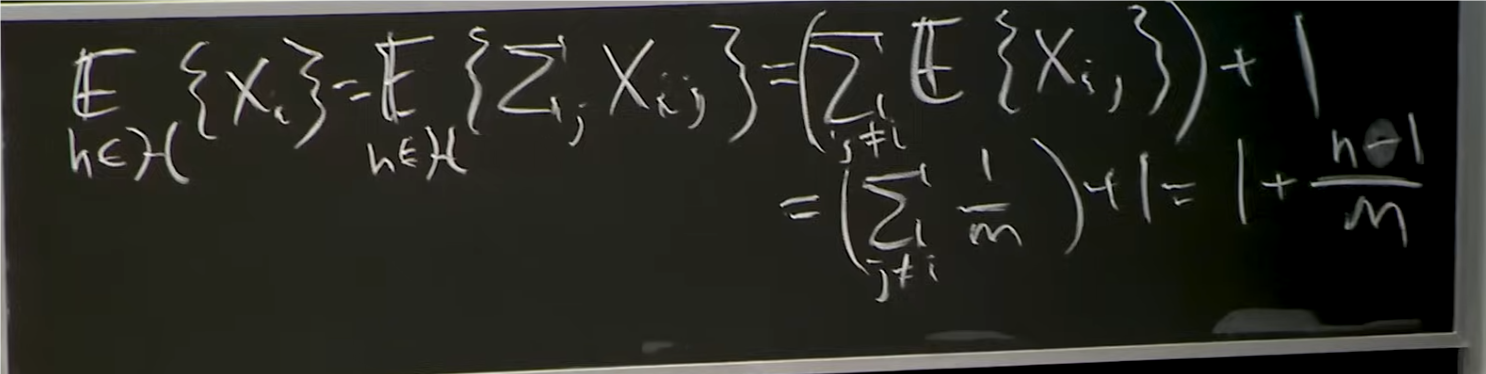 𝔼_{h∈ℋ} {X_i} = 𝔼_{h∈ℋ} {Σ_j X_{ij}} = (Σ_{j≠i} 𝔼 {X_{ij}}) + 1
= (Σ_{j≠i} 1/m) + 1 = 1 + (n-1)/m